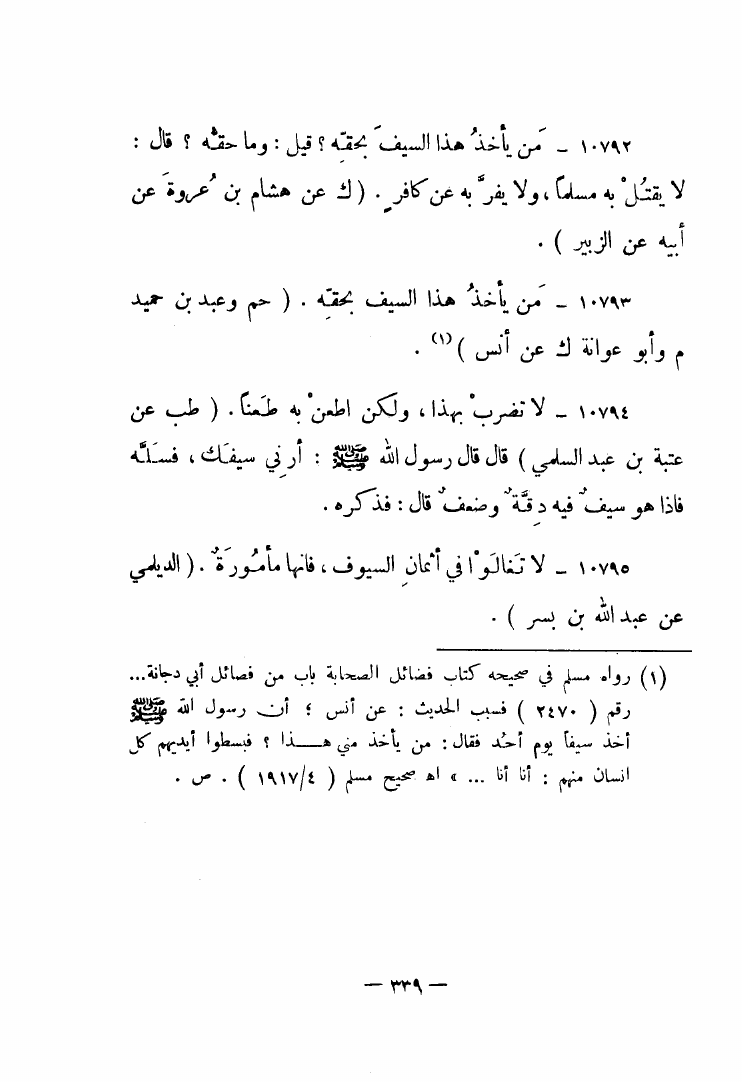 ١٠٧٩٢ – مَن يأخذُ هذا السيفَ بحقِّه ؟ قيل : وما حقُّه ؟ قال :
لا يقتُلْ به مسلماً ، ولا يفرَّ به عن كافرٍ . ( ك عن هشام بن عُروةَ عن
أبيه عن الزبير ) .
١٠٧٩٣ – مَن يأخذُ هذا السيف بحقِّه . ( حم وعبد بن حميد
م وأبو عوانة ك عن أنس )(١) .
١٠٧٩٤ – لا تضربْ بهذا ، ولكن اطعنْ به طَعناً . ( طب عن
عتبة بن عبد السلمي ) قال قال رسول الله ﷺ : أرِني سيفَك ، فسَلَّه
فاذا هو سيفٌ فيه دِقَّةٌ وضعفٌ قال : فذكره .
١٠٧٩٥ – لا تَغالَوْا في أثمانِ السيوف ، فانها مأمُورَةٌ . ( الديلمي
عن عبد الله بن بسر ) .
(١) رواه مسلم في صحيحه كتاب فضائل الصحابة باب من فضائل أبي دجانة...
رقم ( ٢٤٧٠ ) فسبب الحديث : عن أنس ؛ أن رسول الله ﷺ
أخذ سيفاً يوم أحُد فقال : من يأخذ مني هـــذا ؟ فبسطوا أيديهم كل
انسان منهم : أنا أنا ... » اه صحيح مسلم ( ١٩١٧/٤ ) . ص .
– ٣٣٩ –